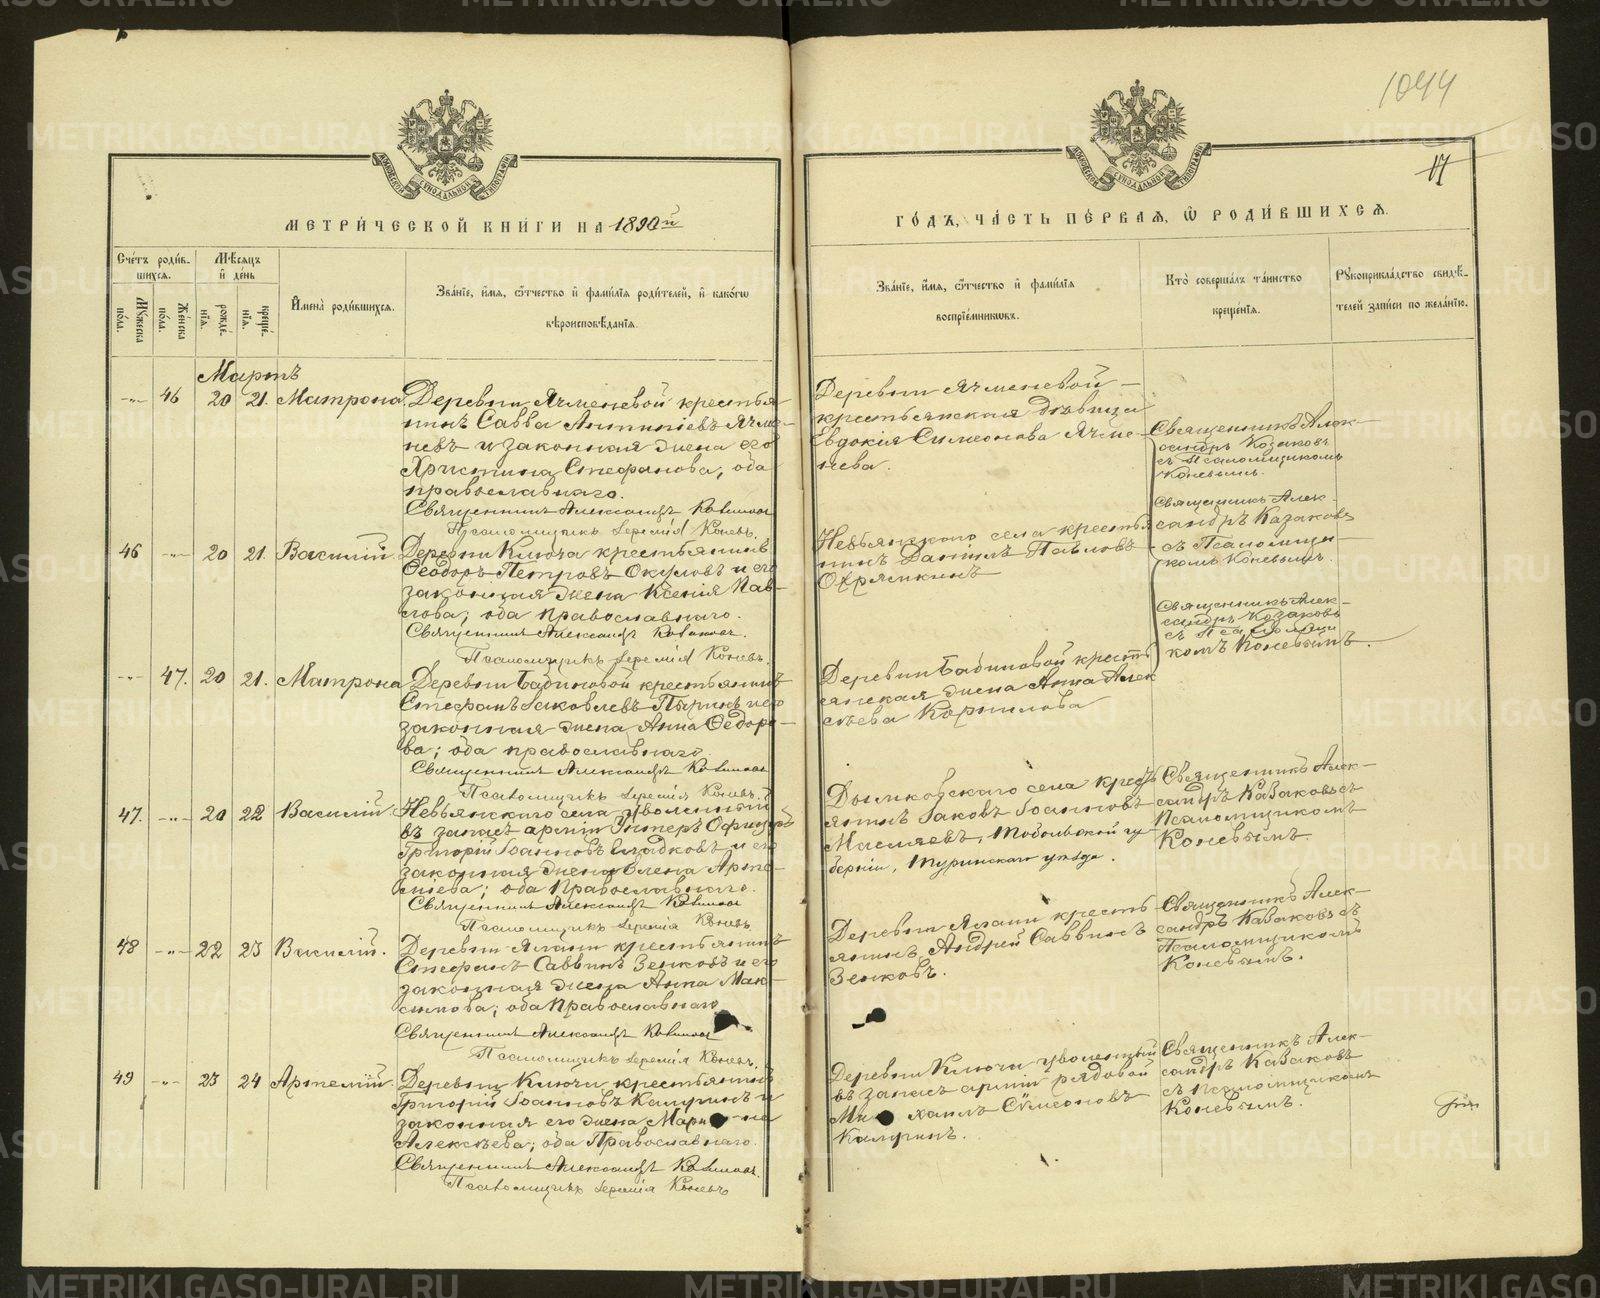 1044
17
МЕТРИ́ЧЕСКОЙ КНИ́ГИ НА 1890й
ГО́ДЪ, ЧА́СТЬ ПЕ́РВАЯ, Ѿ РОДИ́ВШИХСЯ.
Сче́тъ роди́в-
шихся.
Мѣ́сяцъ
и҆ де́нь
Му́жеска
по́ла.
Же́нска
по́ла.
рожде́-
нія.
креще́-
нія.
И҆мена̀ роди́вшихся.
Зва́ніе, и҆́мя, ѻ҆́тчество и҆ фами́лія роди́телей, и҆ како́гѡ
вѣроисповѣ́данія.
Зва́ніе, и҆́мя, ѻ҆́тчество и҆ фами́лія
воспріе́мниковъ.
Кто̀ соверша́лъ та́инство
креще́нія.
Рꙋкоприкла́дство свидѣ́-
телей за́писи по жела́нію.
Мартъ
-"- 46 20 21. Матрона. Деревни Ячменевой крестья-
нинъ Савва Антипіевъ Ячме-
невъ и законная жена его
Христина Стефанова, оба
православнаго.
Священникъ Александръ Козаковъ
Псаломщикъ Іеремія Коневъ.
Деревни Ячменевой -
крестьянская дѣвица
Евдокія Симеонова Ячме-
нева.
Священникъ Алек-
сандръ Козаковъ
съ Псаломщикомъ
Коневымъ.
46 -"- 20 21. Василій Деревни Ключа крестьянинъ
Ѳеодоръ Петровъ Окуловъ и его
законная жена Ксенія Пав-
лова; оба православнаго.
Священникъ Александръ Козаковъ.
Псаломщикъ Іеремія Коневъ.
Невьянскаго села крестья-
нинъ Даніилъ Павловъ
Священникъ Алек-
сандръ Казаковъ
съ Псаломщи-
комъ Коневымъ.
-"- 47. 20 21. Матрона Деревни Бабиновой крестьянинъ
Стефанъ Іаковлевъ и его
законная жена Анна Ѳедоро-
ва; оба православнаго
Священникъ Александръ Козаковъ
Псаломщикъ Іеремія Коневъ.
Деревни Бабиновой кресть
янская жена Анна Алек
сѣева Корнилова
Священникъ Алек-
сандръ Козаковъ
съ Псаломщи
комъ Коневымъ.
47. -"- 20 22 Василій. Невьянскаго села уволенный
въ запасъ арміи Унтеръ Офицеръ
Григорій Іоанновъ Сладковъ и его
законная жена Елена Арте-
міева; оба Православнаго.
Священникъ Александръ Козаковъ
Псаломщикъ Іеремія Коневъ.
села кресть
янинъ Іаковъ Іоанновъ
Масляевъ, Тобольской гу
берніи, Туринскаго уѣзда.
Священникъ Алек-
сандръ Казаковъ съ
Псаломщикомъ
Коневымъ.
48 -"- 22 23 Василій. Деревни Ялани крестьянинъ
Стефанъ Саввинъ Зенковъ и его
законная жена Анна Мак-
симова; оба Православнаго
Священникъ Александръ Козаковъ
Псаломщикъ Іеремія Коневъ.
Деревни Ялани кресть
янинъ Андрей Саввинъ
Зенковъ.
Священникъ Алек-
сандръ Казаковъ съ
Псаломщикомъ
Коневымъ.
49 -"- 23 24 Артемій. Деревни Ключи крестьянинъ
Григорій Іоанновъ Калугинъ и
законная его жена
Алексѣева; оба Православнаго.
Священникъ Александръ Козаковъ.
Псаломщикъ Іеремія Коневъ
Деревни Ключи уволенный
въ запасъ арміи рядовой
Михаилъ Сѵмеоновъ
Калугинъ.
Священникъ Алек-
сандръ Казаковъ
съ Псаломщикомъ
Коневымъ.
METRIKI.GASO-URAL.RU